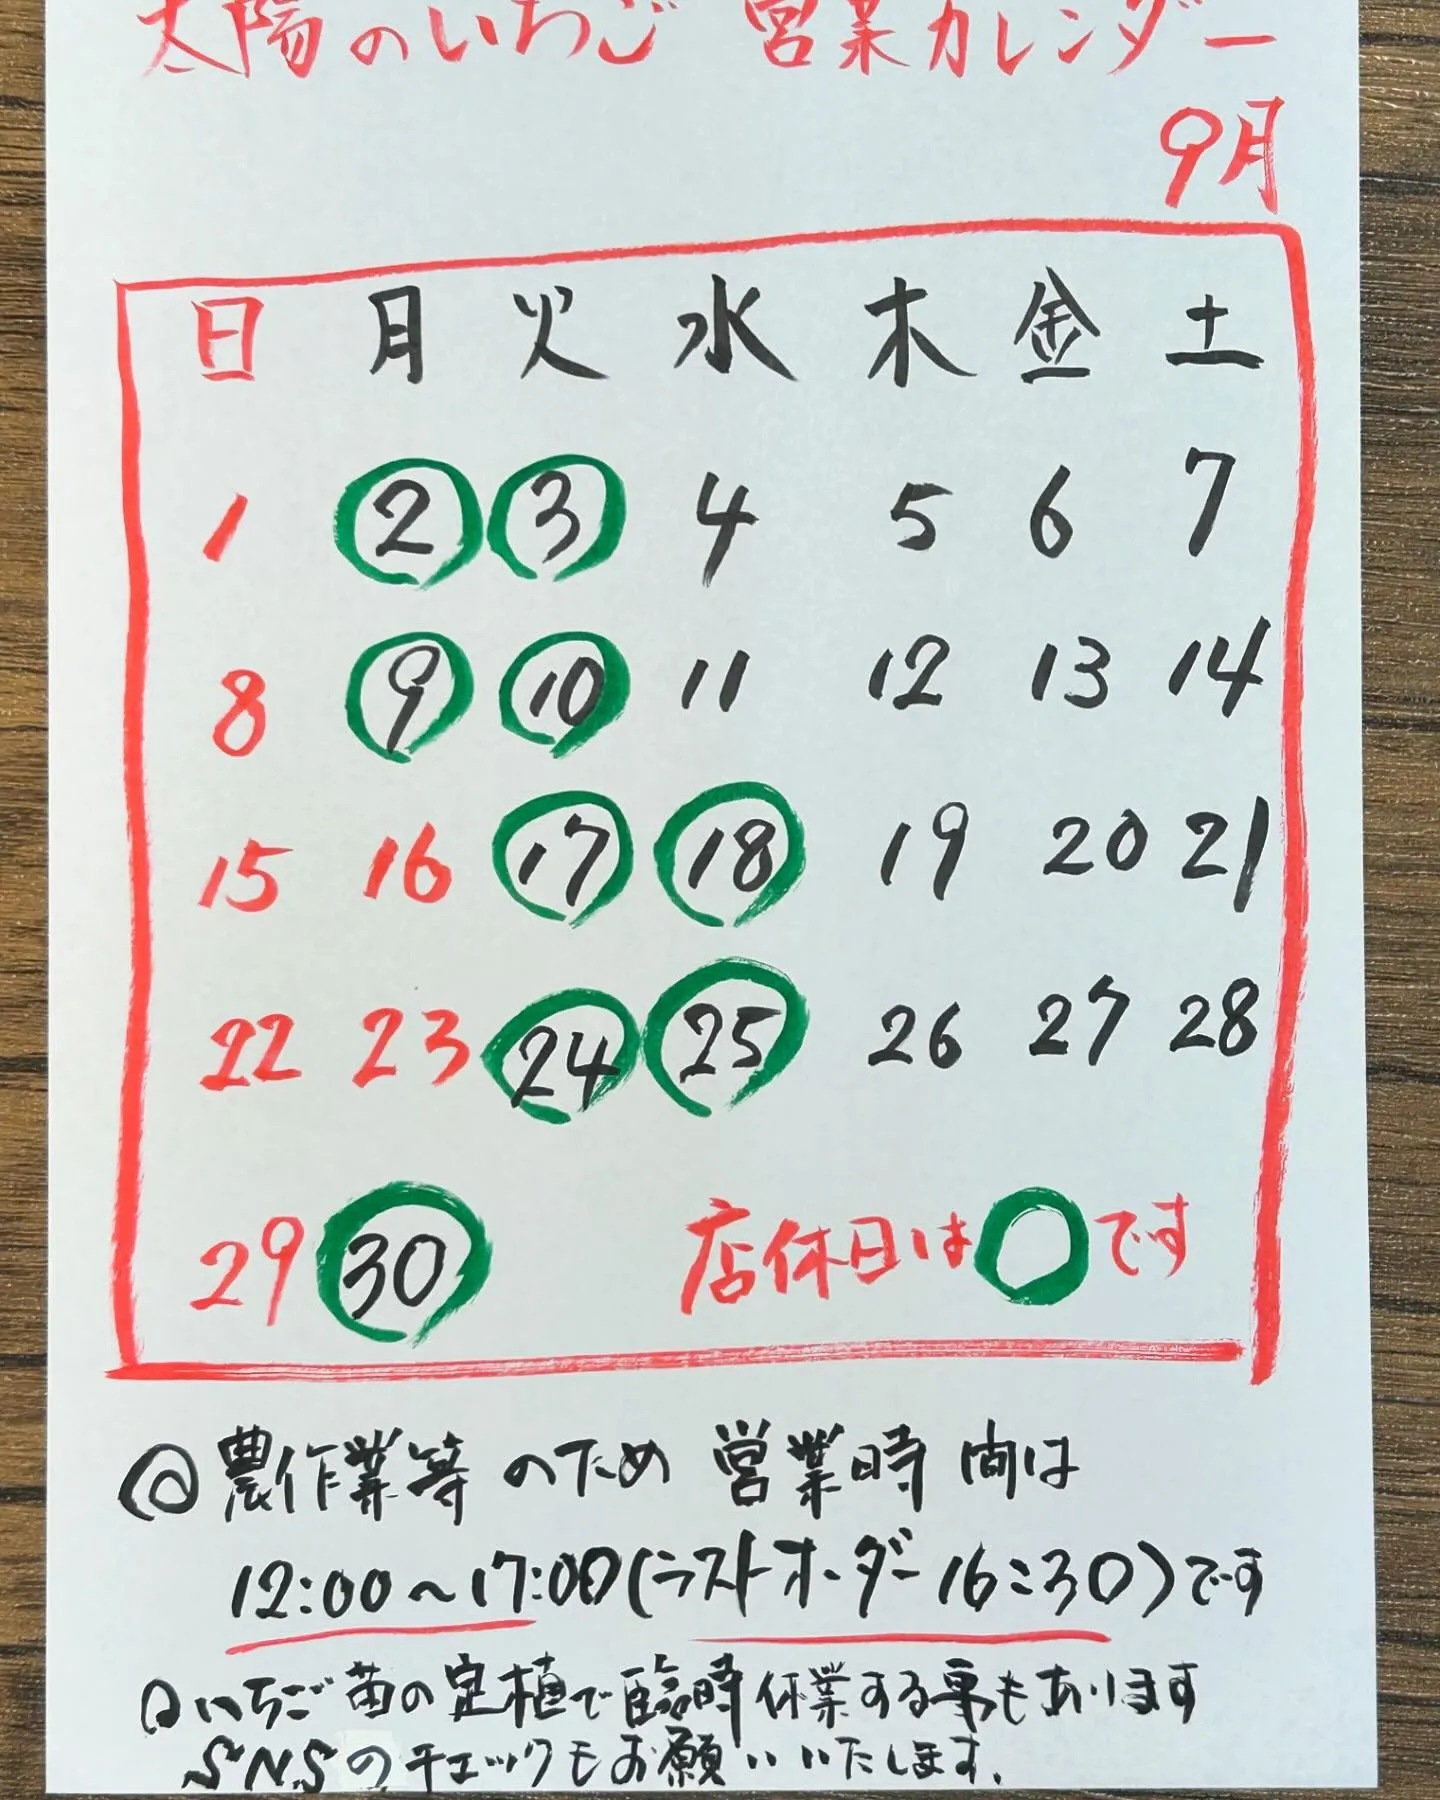 太陽のいちご 営業カレンダー
9月
日 月 火 水 木 金 土
1 2 3 4 5 6 7
8 9 10 11 12 13 14
15 16 17 18 19 20 21
22 23 24 25 26 27 28
29 30 店休日は○です
◎農作業等のため営業時間は
12:00~17:00(ラストオーダー16:30)です
○いちご苗の定植で臨時休業する事もあります
SNSのチェックもお願いいたします.